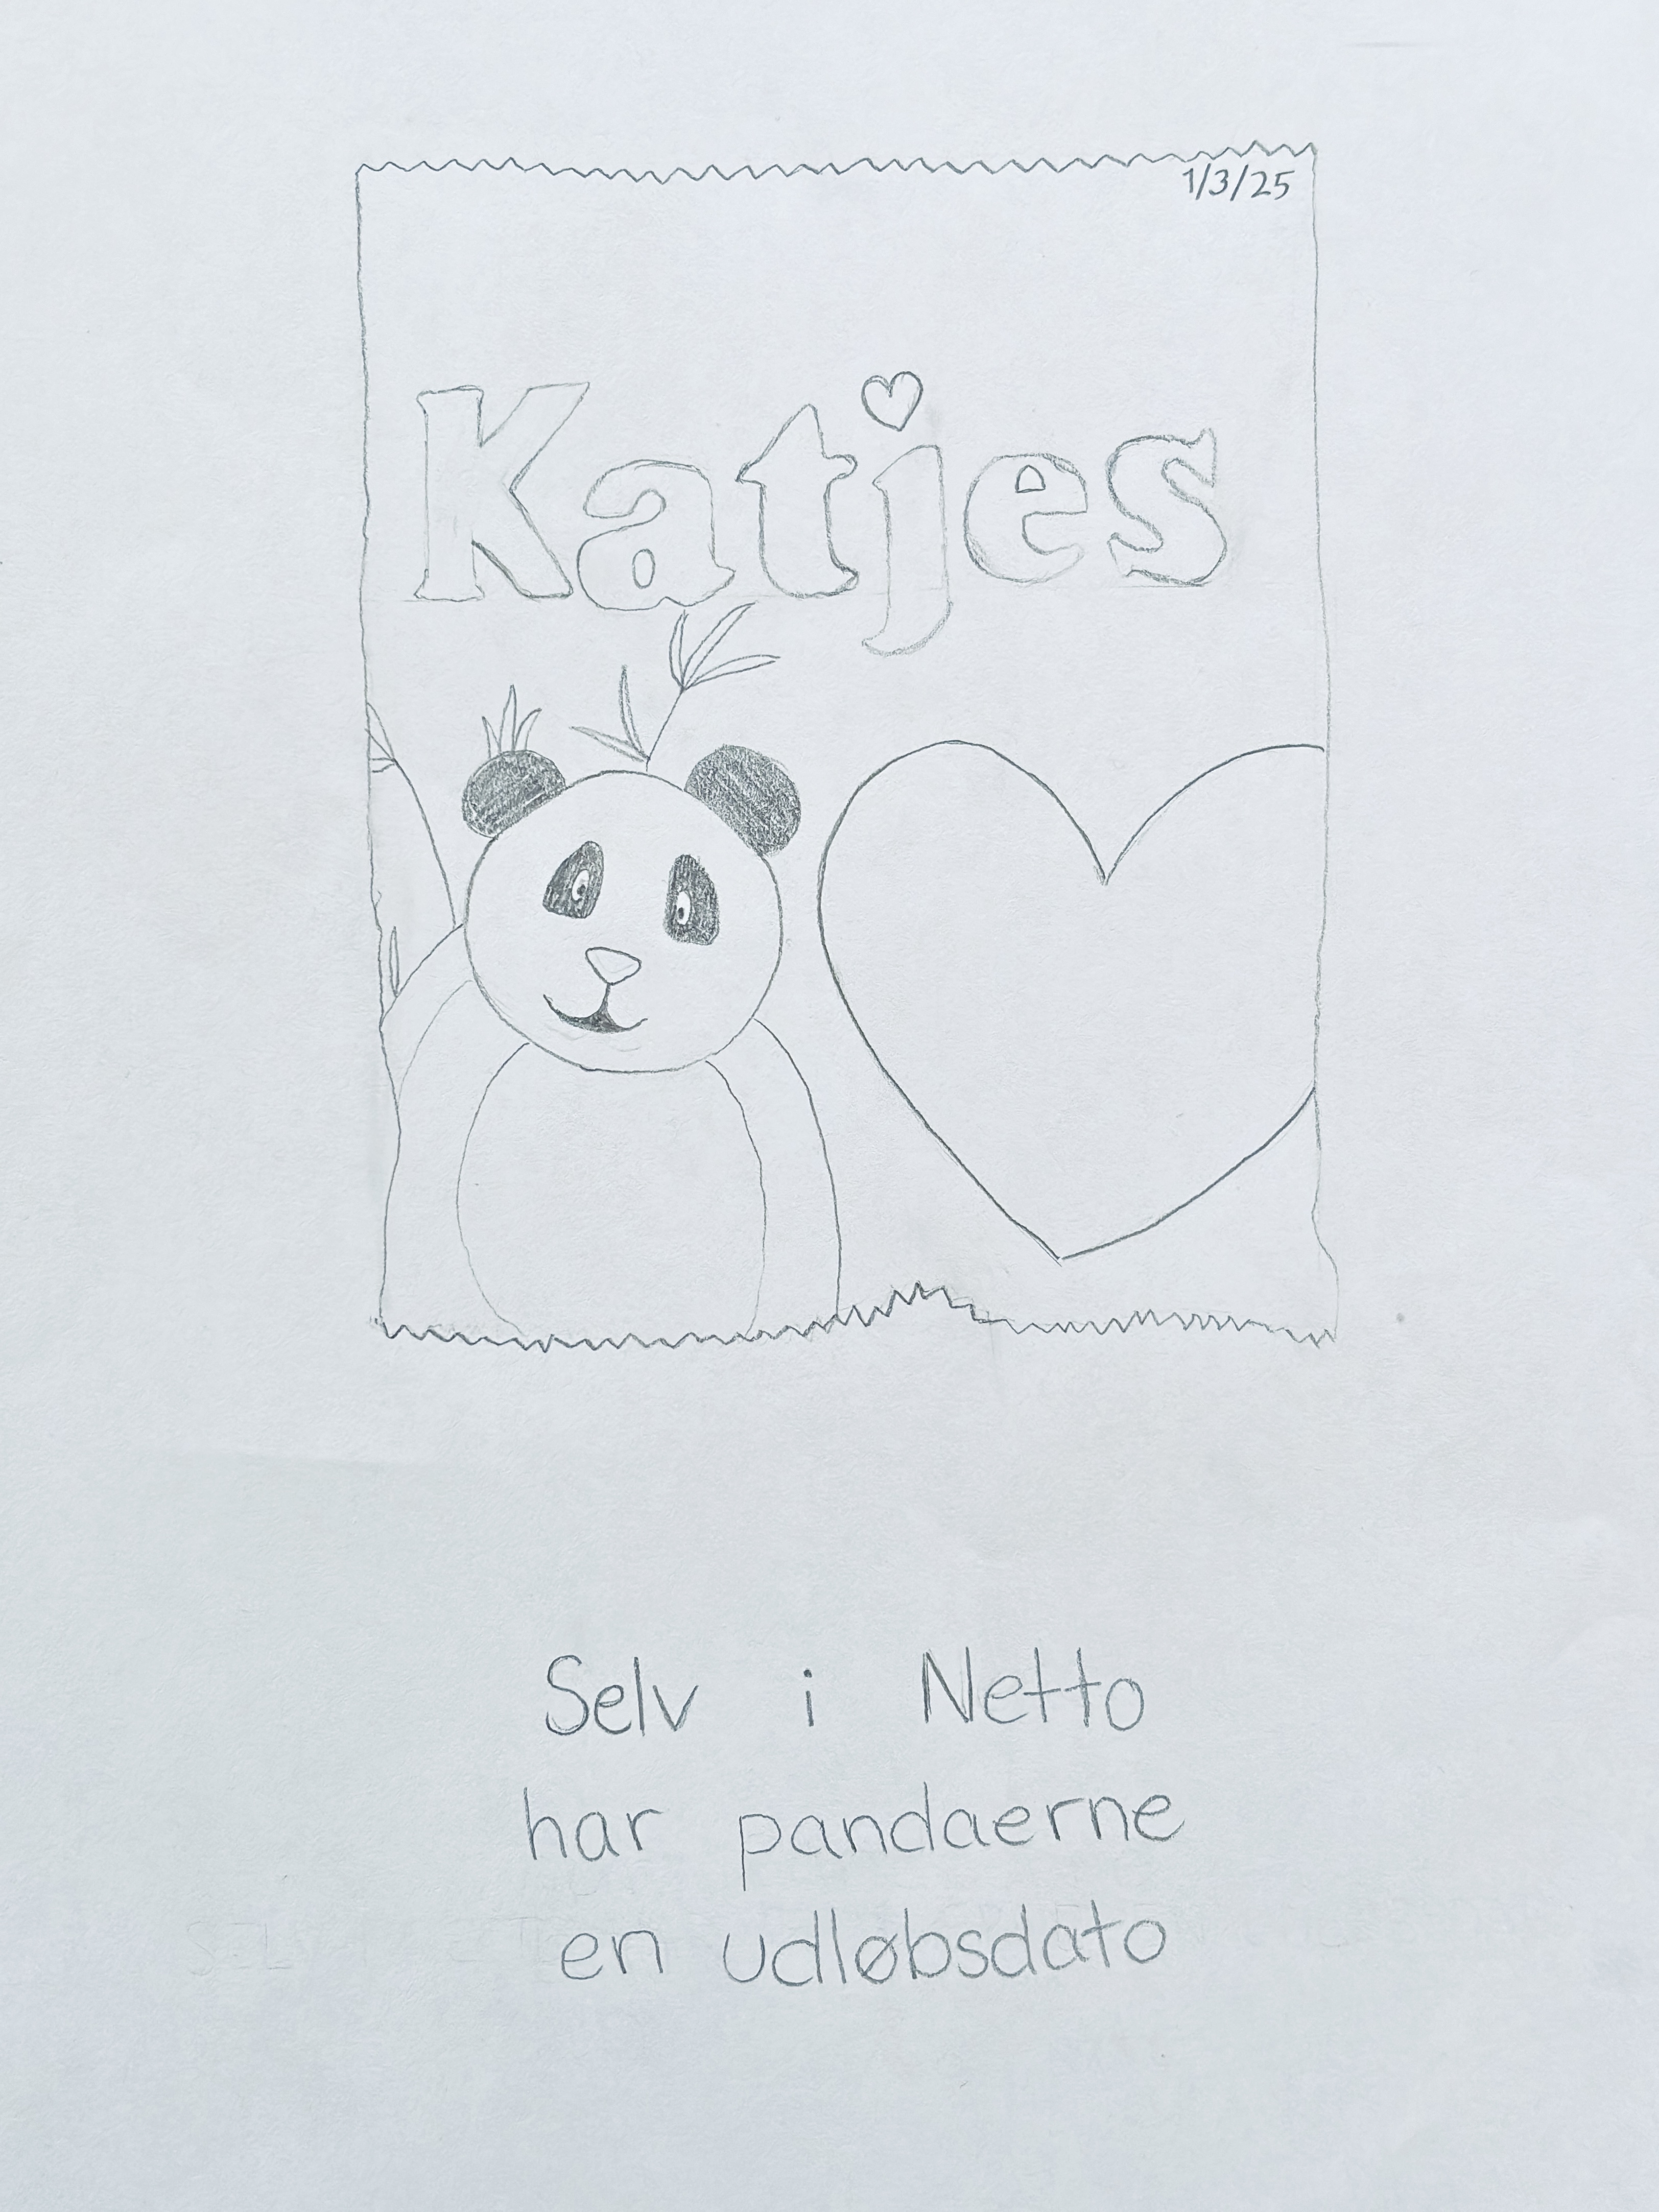 1/3/25
Katjes
Selv i Netto
har pandaerne
en udløbsdato